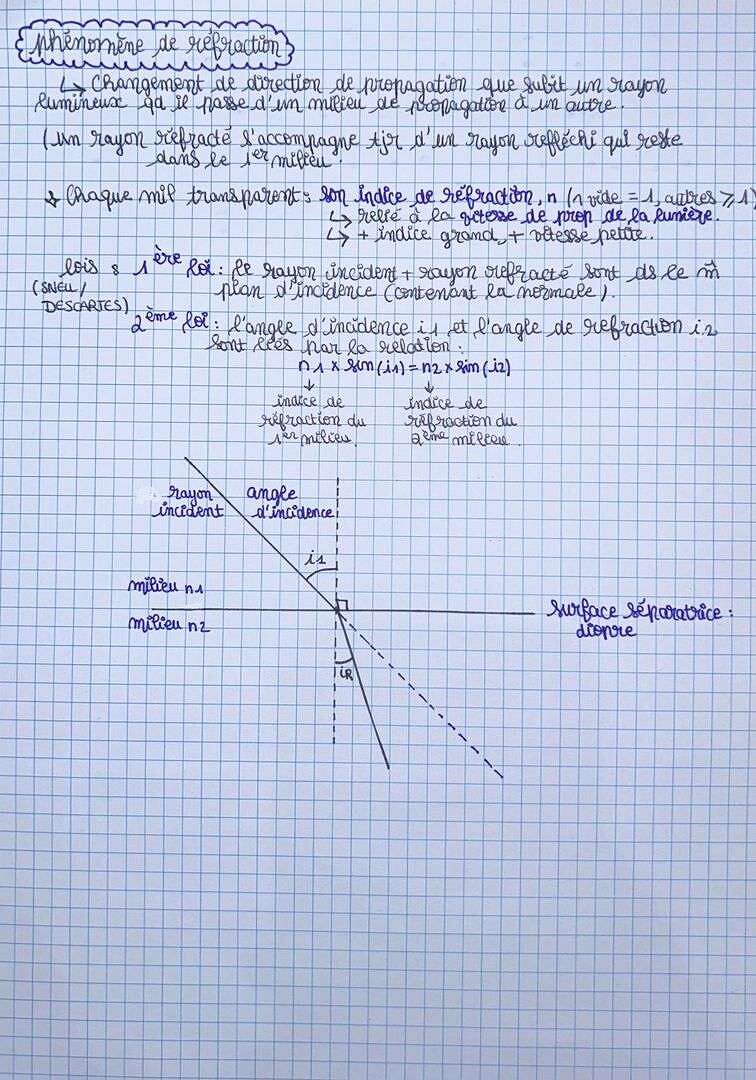 phénomène de réfraction
↳ Changement de direction de propagation que subit un rayon
lumineux qd il passe d'un milieu de propagation à un autre.
(un rayon réfracté s'accompagne tjr d'un rayon reflèchi qui reste
dans le 1er milieu.
Chaque mil transparent : son indice de réfraction, n (n vide = 1, autres ⩾ 1)
↳ relié à la vitesse de prop de la lumière.
↳ + indice grand, + vitesse petite.
lois : 1ère loi : le rayon incident + rayon refracté sont ds le m̂
(SNELL/ plan d'incidence (contenant la normale).
DESCARTES)
2ème loi : l'angle d'incidence i1 et l'angle de refraction i2
sont liés par la relation :
n1 × sin(i1) = n2 × sin(i2)
↓ ↓
indice de indice de
réfraction du réfraction du
1er milieu. 2ème milieu.
rayon angle
incident d'incidence
i1
milieu n1
surface séparatrice :
milieu n2
dioptre
iR